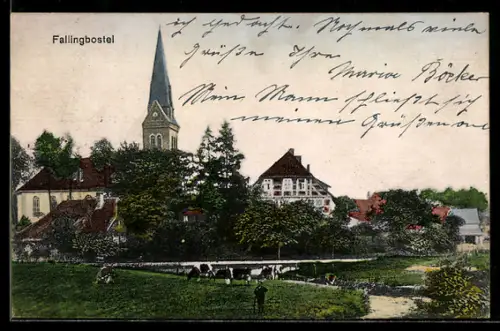 Fallingbostel
ich gedachte. Nochmals viele
Grüße Ihre
Maria Böcker
Mein Mann schließt sich
meinen Grüßen an